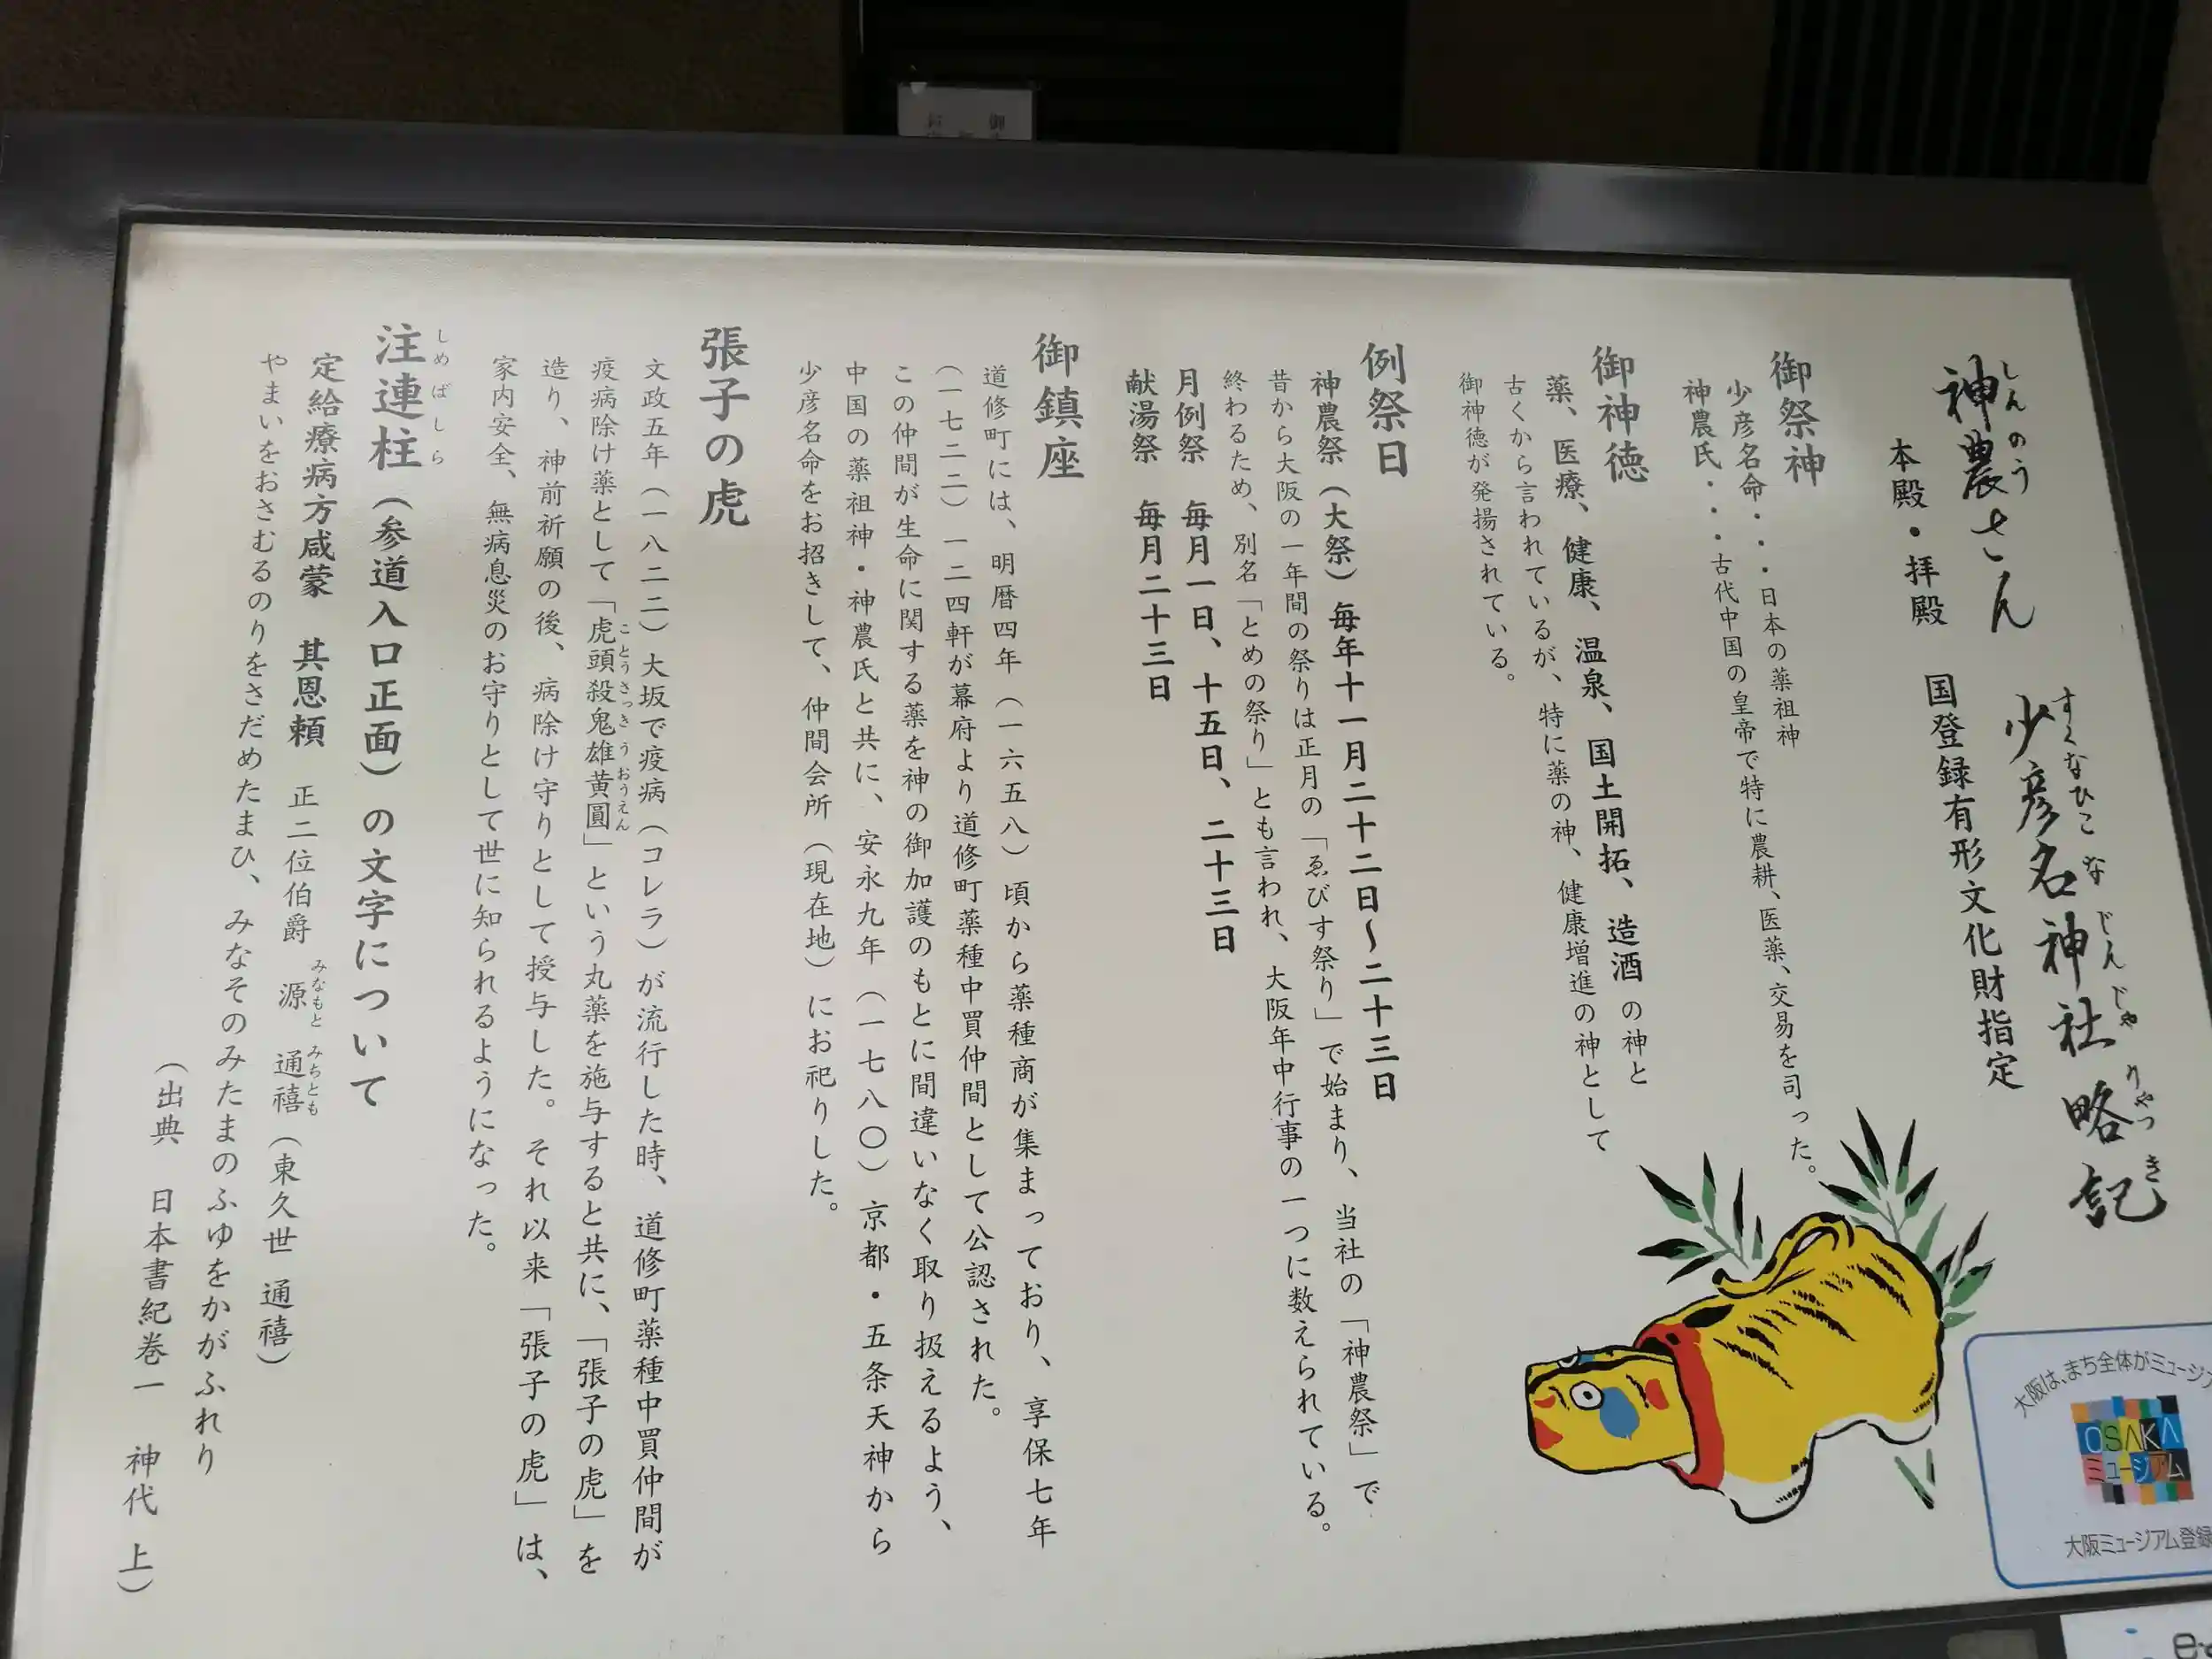 神農さん 少彦名神社略記
しんのう すくなひこなじんじゃりゃっき
本殿・拝殿 国登録有形文化財指定
御祭神
少彦名命・・・日本の薬祖神
神農氏・・・古代中国の皇帝で特に農耕、医薬、交易を司った。
御神徳
薬、医療、健康、温泉、国土開拓、造酒の神と
古くから言われているが、特に薬の神、健康増進の神として
御神徳が発揚されている。
例祭日
神農祭（大祭）毎年十一月二十二日〜二十三日
昔から大阪の一年間の祭りは正月の「ゑびす祭り」で始まり、当社の「神農祭」で
終わるため、別名「とめの祭り」とも言われ、大阪年中行事の一つに数えられている。
月例祭 毎月一日、十五日、二十三日
献湯祭 毎月二十三日
御鎮座
道修町には、明暦四年（一六五八）頃から薬種商が集まっており、享保七年
（一七二二）一二四軒が幕府より道修町薬種中買仲間として公認された。
この仲間が生命に関する薬を神の御加護のもとに間違いなく取り扱えるよう、
中国の薬祖神・神農氏と共に、安永九年（一七八〇）京都・五条天神から
少彦名命をお招きして、仲間会所（現在地）にお祀りした。
張子の虎
文政五年（一八二二）大坂で疫病（コレラ）が流行した時、道修町薬種中買仲間が
疫病除け薬として「虎頭殺鬼雄黄圓」という丸薬を施与すると共に、「張子の虎」を
ことうさっきうおうえん
造り、神前祈願の後、病除け守りとして授与した。それ以来「張子の虎」は、
家内安全、無病息災のお守りとして世に知られるようになった。
注連柱（参道入口正面）の文字について
しめばしら
定給療病方咸蒙 其恩頼 正二位伯爵 源 通禧（東久世 通禧）
みなもと みちとも
やまいをおさむるのりをさだめたまひ、みなそのみたまのふゆをかがふれり
（出典 日本書紀巻一 神代 上）
大阪は、まち全体がミュージア
OSAKA
ミュージアム
大阪ミュージアム登録